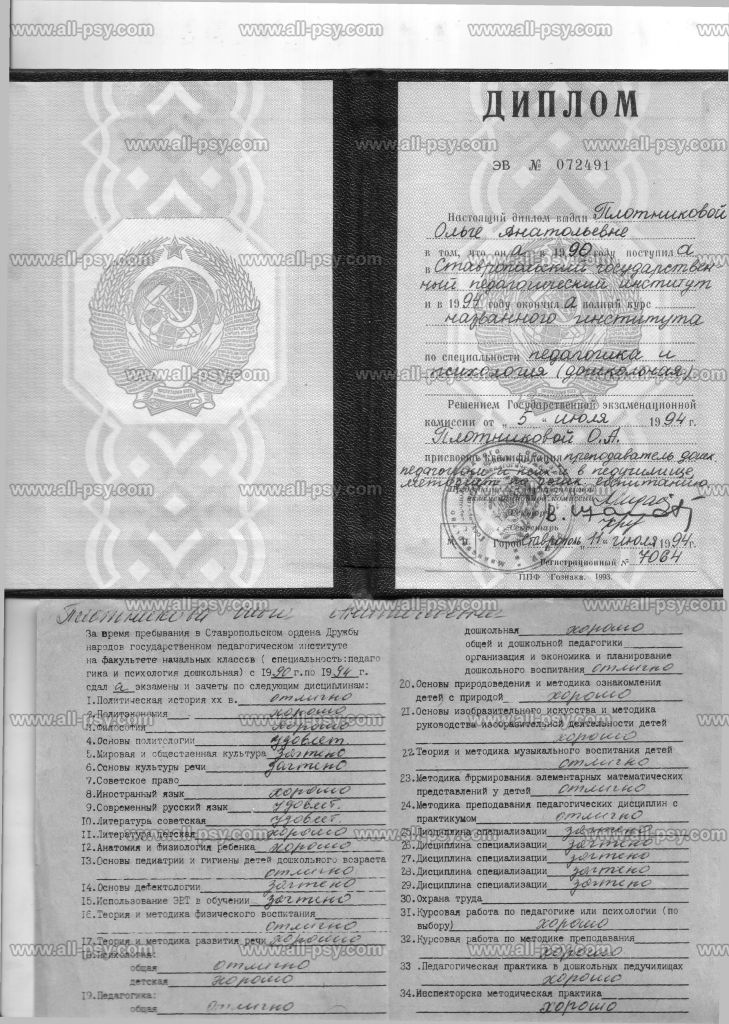 www.all-psy.com www.all-psy.com www.all-psy.com
ДИПЛОМ
ЭВ № 072491
Настоящий диплом выдан Плотниковой
Ольге Анатольевне
в том, что он а в 1990 году поступил а
в Ставропольский государствен-
ный педагогический институт
и в 1994 году окончил а полный курс
названного института
по специальности педагогика и
психология (дошкольная)
Решением Государственной экзаменационной
комиссии от „ 5 “ июля 1994 г.
Плотниковой О.А.
присвоена квалификация преподаватель дошк.
педагогики и псих-и в педучилище,
методист по дошк. воспитанию
Председатель Государственной
экзаменационной комиссии
Ректор
Секретарь
Город Ставрополь „ 11 “ июля 1994 г.
Регистрационный № 7064
ППФ Гознака. 1993.
Плотниковой Ольги Анатольевны
За время пребывания в Ставропольском ордена Дружбы
народов государственном педагогическом институте
на факультете начальных классов ( специальность:педаго
гика и психология дошкольная) с 1990 г.по 1994 г.
сдал а экзамены и зачеты по следующим дисциплинам:
1.Политическая история XX в. отлично
2.Политэкономия хорошо
3.Философия хорошо
4.Основы политологии удовлет.
5.Мировая и общественная культура зачтено
6.Основы культуры речи зачтено
7.Советское право
8.Иностранный язык хорошо
9.Современный русский язык удовлет.
10.Литература советская удовлет.
11.Литература детская хорошо
12.Анатомия и физиология ребенка хорошо
13.Основы педиатрии и гигиены детей дошкольного возраста
отлично
14.Основы дефектологии зачтено
15.Использование ЭВТ в обучении зачтено
16.Теория и методика физического воспитания
отлично
17.Теория и методика развития речи хорошо
18.Психология:
общая отлично
детская хорошо
19.Педагогика:
общая отлично
дошкольная хорошо
общей и дошкольной педагогики
организация и экономика и планирование
дошкольного воспитания отлично
20.Основы природоведения и методика ознакомления
детей с природой хорошо
21.Основы изобразительного искусства и методика
руководства изобразительной деятельности детей
хорошо
22.Теория и методика музыкального воспитания детей
отлично
23.Методика формирования элементарных математических
представлений у детей отлично
24.Методика преподавания педагогических дисциплин с
практикумом отлично
25.Дисциплина специализации зачтено
26.Дисциплина специализации зачтено
27.Дисциплина специализации зачтено
28.Дисциплина специализации зачтено
29.Дисциплина специализации зачтено
30.Охрана труда
31.Курсовая работа по педагогике или психологии (по
выбору) хорошо
32.Курсовая работа по методике преподавания
хорошо
33 .Педагогическая практика в дошкольных педучилищах
хорошо
34.Инспекторско методическая практика
хорошо